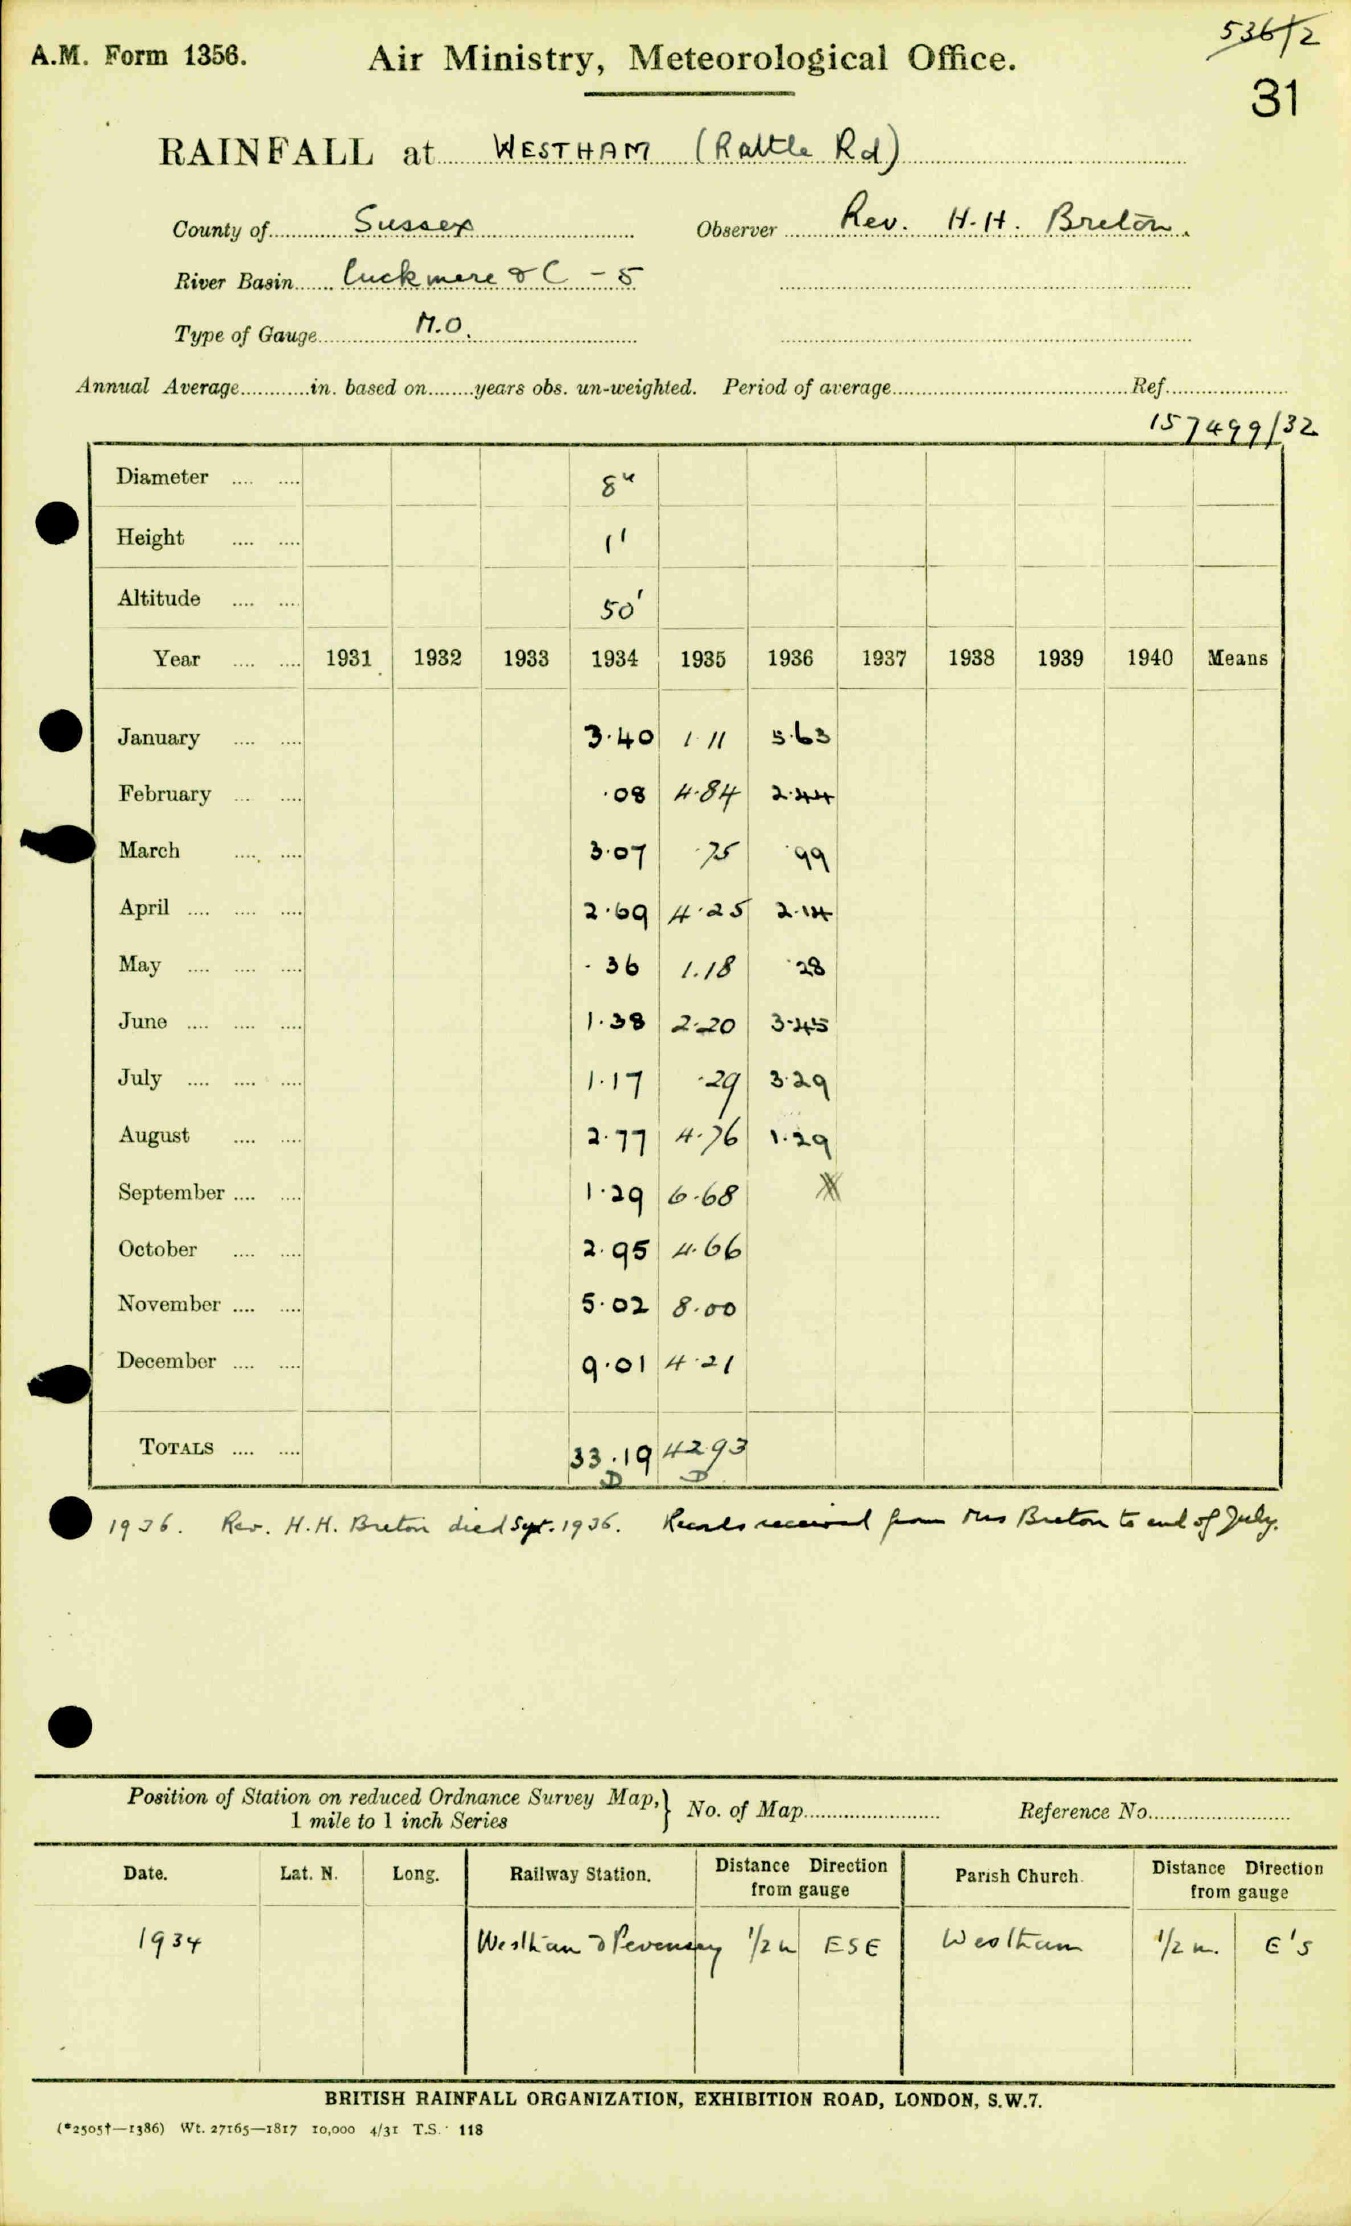 536/2
A.M. Form 1356.
Air Ministry, Meteorological Office.
31
RAINFALL at WESTHAM (Rattle Rd)
County of Sussex Observer Rev. H.H. Breton.
River Basin Cuckmere & C - 5
Type of Gauge M.O.
Annual Average in. based on years obs. un-weighted. Period of average Ref.
157499/32
Diameter 8"
Height 1'
Altitude 50'
Year 1931 1932 1933 1934 1935 1936 1937 1938 1939 1940 Means
January 3.40 1.11 5.63
February .08 4.84 2.44
March 3.07 .75 .99
April 2.69 4.25 2.14
May .36 1.18 .28
June 1.38 2.20 3.45
July 1.17 .29 3.29
August 2.77 4.76 1.29
September 1.29 6.68
October 2.95 4.66
November 5.02 8.00
December 9.01 4.21
TOTALS 33.19 42.93
D D
1936. Rev. H.H. Breton died Sept. 1936. Records received from Mrs Breton to end of July.
Position of Station on reduced Ordnance Survey Map, } No. of Map Reference No.
1 mile to 1 inch Series
Date. Lat. N. Long. Railway Station. Distance Direction from gauge Parish Church. Distance Direction from gauge
1934 Westham & Pevensey 1/2 m ESE Westham 1/2 m. E'S
BRITISH RAINFALL ORGANIZATION, EXHIBITION ROAD, LONDON, S.W.7.
(*2505†—1386) Wt. 27165—1817 10,000 4/31 T.S. 118